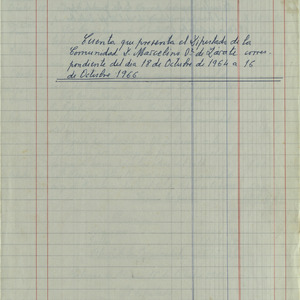 Cuenta que presenta el Diputado de la
Comunidad D. Marcelino Oz. de Zarate corres-
pondiente del dia 18 de Octubre de 1964 a 16
de Octubre 1966